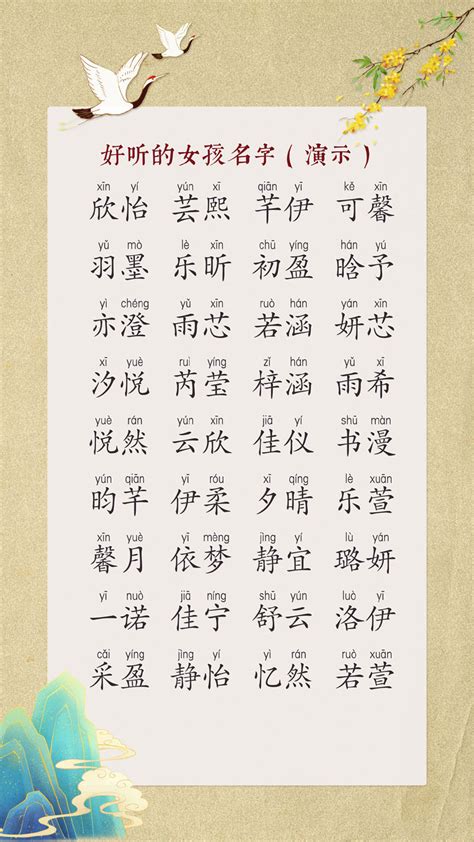 好听的女孩名字（演示）
xīn yí yún xī qiān yī kě xīn
欣怡 芸熙 芊伊 可馨
yǔ mò lè xīn chū yíng hán yú
羽墨 乐昕 初盈 晗予
yì chéng yǔ xīn ruò hán yán xīn
亦澄 雨芯 若涵 妍芯
xī yuè ruì yíng zǐ hán yǔ xī
汐悦 芮莹 梓涵 雨希
yuè rán yún xīn jiā yí shū màn
悦然 云欣 佳仪 书漫
yún qiān yī róu xī qíng lè xuān
昀芊 伊柔 夕晴 乐萱
xīn yuè yī mèng jìng yí lù yán
馨月 依梦 静宜 璐妍
yī nuò jiā níng shū yún luò yī
一诺 佳宁 舒云 洛伊
cǎi yíng jìng yí yì rán ruò xuān
采盈 静怡 忆然 若萱